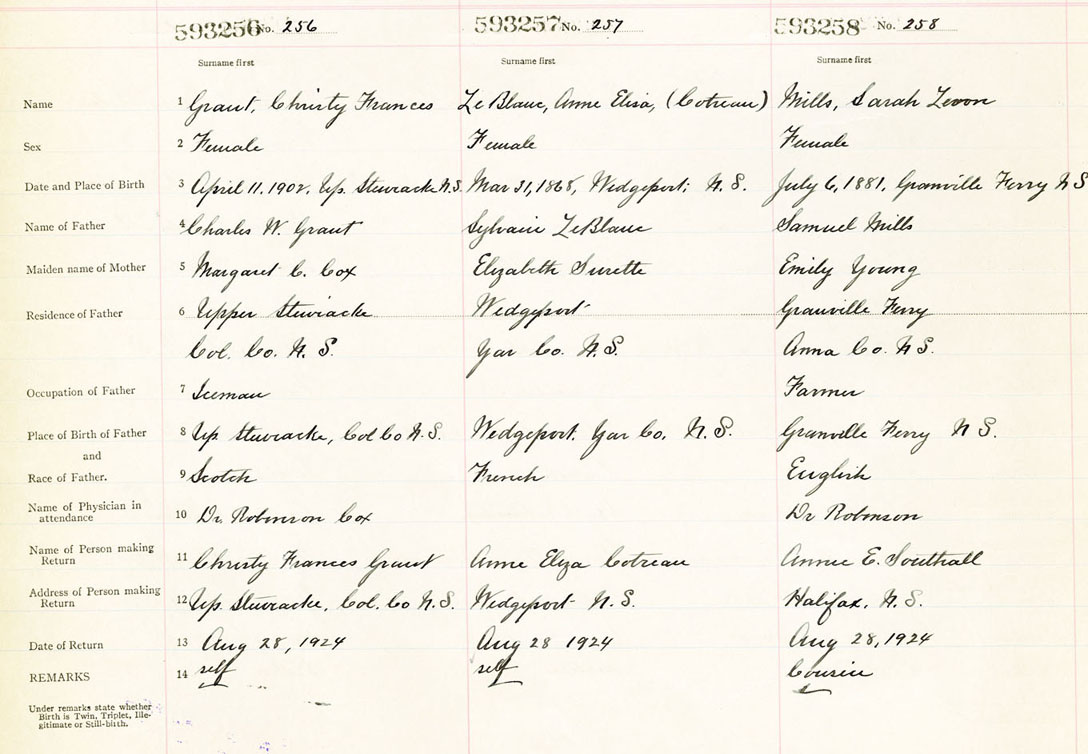 593256 No. 256 593257 No. 257 593258 No. 258
Surname first Surname first Surname first
Name 1 Grant, Christy Frances LeBlanc, Anne Elisa, (Cotreau) Mills, Sarah Levon
Sex 2 Female Female Female
Date and Place of Birth 3 April 11, 1902, Up. Stewiacke N.S. Mar 31, 1868, Wedgeport; N.S. July 6, 1881, Granville Ferry N S
Name of Father 4 Charles W. Grant Sylvain LeBlanc Samuel Mills
Maiden name of Mother 5 Margaret C. Cox Elizabeth Surette Emily Young
Residence of Father 6 Upper Stewiacke Wedgeport Granville Ferry
Col. Co. N. S. Yar Co. N.S. Anna Co. N S.
Occupation of Father 7 Iceman Farmer
Place of Birth of Father 8 Up Stewiacke, Col Co N.S. Wedgeport. Yar Co. N.S. Granville Ferry N S.
and
Race of Father. 9 Scotch French English
Name of Physician in
attendance 10 Dr. Robinson Cox Dr Robinson
Name of Person making
Return 11 Christy Frances Grant Anne Eliza Cotreau Annie E. Southall
Address of Person making
Return 12 Up. Stewiacke, Col. Co N.S. Wedgeport N.S. Halifax, N.S.
Date of Return 13 Aug 28, 1924 Aug 28 1924 Aug 28, 1924
REMARKS 14 self self Cousin
Under remarks state whether
Birth is Twin, Triplet, Ille-
gitimate or Still-birth.